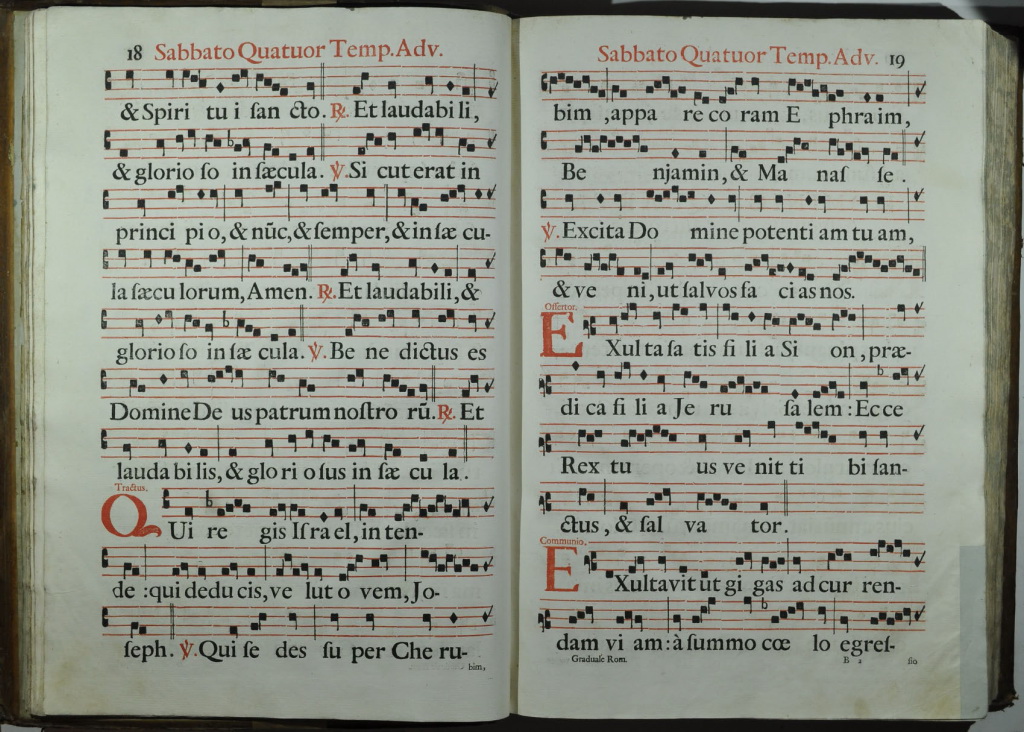 18 Sabbato Quatuor Temp. Adv.
& Spiri tu i ſan cto. ℟. Et laudabi li,
& glorio ſo in ſæcula. ℣. Si cut erat in
princi pi o, & nũc, & ſemper, & in ſæ cu-
la ſæcu lorum, Amen. ℟. Et laudabili, &
glorio ſo in ſæ cula. ℣. Be ne dictus es
Domine De us patrum noſtro rũ. ℟. Et
lauda bi lis, & glo ri o ſus in ſæ cu la.
Tractus.
QUi re gis Iſ ra el, in ten-
de : qui dedu cis, ve lut o vem, Jo-
ſeph. ℣. Qui ſe des ſu per Che ru-
bim,
Sabbato Quatuor Temp. Adv. 19
bim , appa re co ram E phra im,
Be njamin, & Ma naſ ſe .
℣. Excita Do mine potenti am tu am,
& ve ni, ut ſalvos fa ci as nos.
Offertor.
EXul ta ſa tis fi li a Si on , præ-
di ca fi li a Je ru ſa lem : Ec ce
Rex tu us ve nit ti bi ſan-
ctus , & ſal va tor.
Communio.
EXultavit ut gi gas ad cur ren-
dam vi am : à ſummo cœ lo egreſ-
Graduale Rom. B 2 ſio